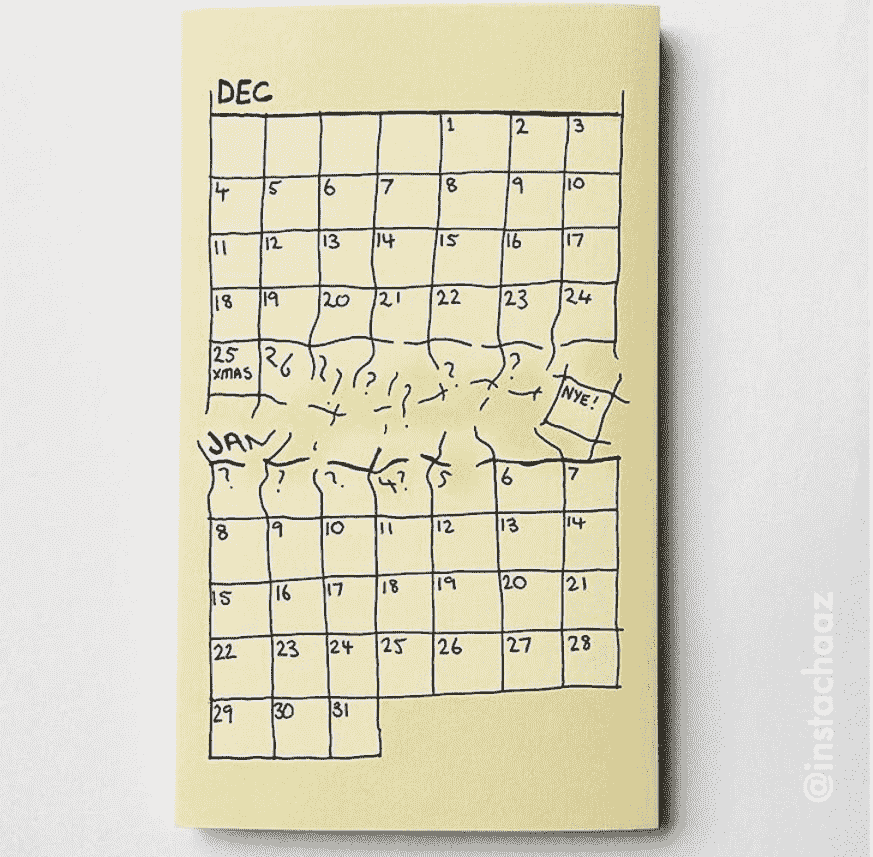 DEC
1 2 3
4 5 6 7 8 9 10
11 12 13 14 15 16 17
18 19 20 21 22 23 24
25 26 ? ? ? ? ? ? ?
XMAS
NYE!
JAN
? ? ? 4? 5 6 7
8 9 10 11 12 13 14
15 16 17 18 19 20 21
22 23 24 25 26 27 28
29 30 31
@instachaaz